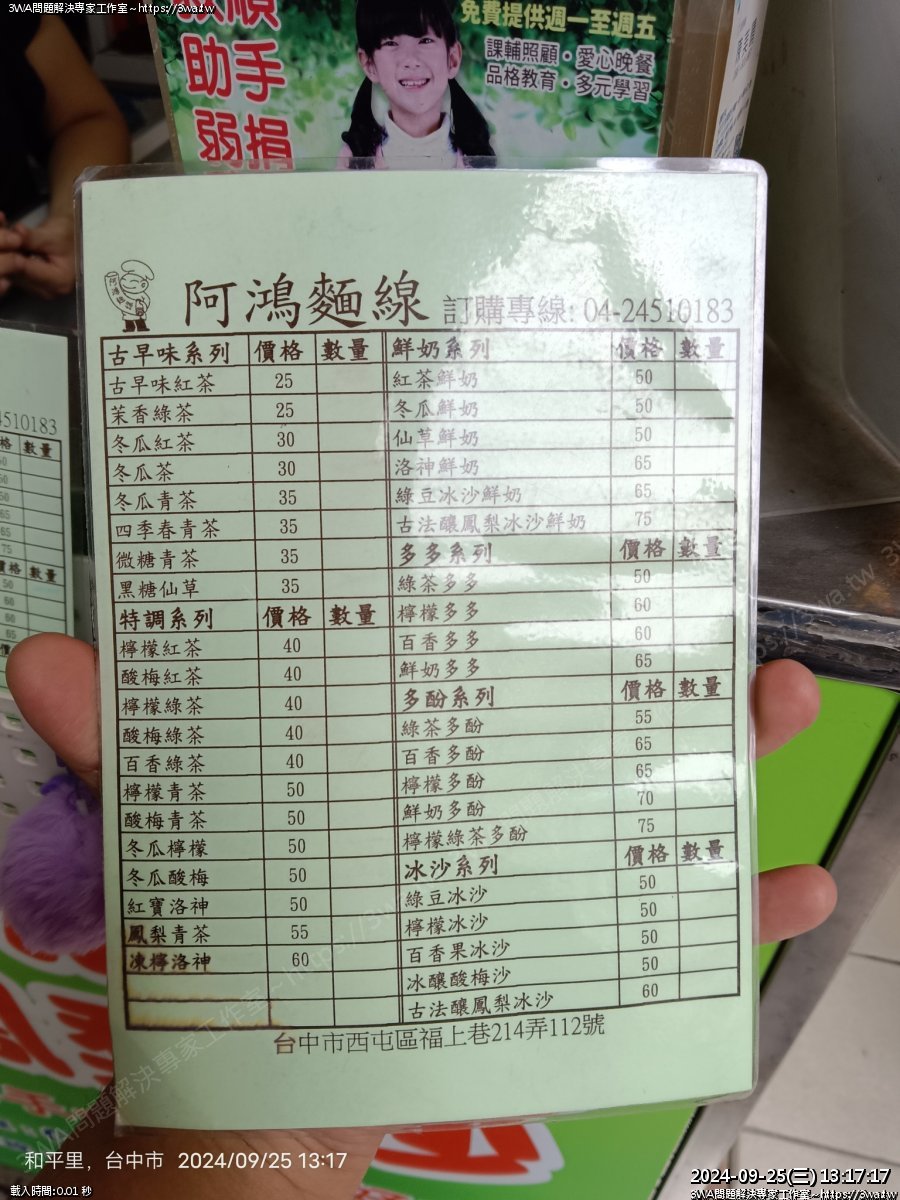 3WA問題解決專家工作室~https://3wa.tw
3WA問題解決專家工作室~https://3wa.tw
免費提供週一至週五
助手
課輔照顧・愛心晚餐
品格教育・多元學習
弱捐
阿鴻麵線 訂購專線: 04-24510183
古早味系列 價格 數量 鮮奶系列 價格 數量
古早味紅茶 25 紅茶鮮奶 50
茉香綠茶 25 冬瓜鮮奶 50
冬瓜紅茶 30 仙草鮮奶 50
冬瓜茶 30 洛神鮮奶 65
冬瓜青茶 35 綠豆冰沙鮮奶 65
四季春青茶 35 古法釀鳳梨冰沙鮮奶 75
微糖青茶 35 多多系列 價格 數量
黑糖仙草 35 綠茶多多 50
特調系列 價格 數量 檸檬多多 60
檸檬紅茶 40 百香多多 60
酸梅紅茶 40 鮮奶多多 65
檸檬綠茶 40 多酚系列 價格 數量
酸梅綠茶 40 綠茶多酚 55
百香綠茶 40 百香多酚 65
檸檬青茶 50 檸檬多酚 65
酸梅青茶 50 鮮奶多酚 70
冬瓜檸檬 50 檸檬綠茶多酚 75
冬瓜酸梅 50 冰沙系列 價格 數量
紅寶洛神 50 綠豆冰沙 50
鳳梨青茶 55 檸檬冰沙 50
凍檸洛神 60 百香果冰沙 50
冰釀酸梅沙 50
古法釀鳳梨冰沙 60
台中市西屯區福上巷214弄112號
4510183
格 數量
價格 數量
和平里, 台中市 2024/09/25 13:17
2024-09-25(三) 13:17:17
載入時間:0.01 秒
3WA問題解決專家工作室~https://3wa.tw